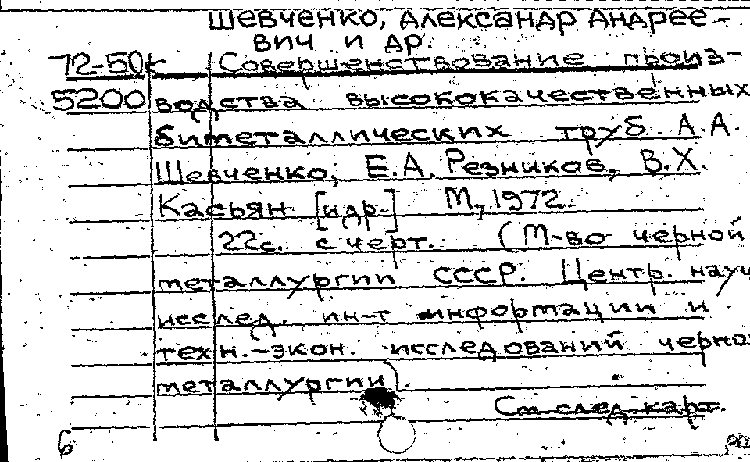 Шевченко, Александр Андрее-
вич и др.
72-50к Совершенствование произ-
5200 водства высококачественных
биметаллических труб. А.А.
Шевченко, Е.А. Резников, В.Х.
Касьян [и др.] М., 1972.
22с. с черт. (М-во черной
металлургии СССР. Центр. науч
исслед. ин-т информации и
техн.-экон. исследований черно
металлургии).
См. след. карт.
6